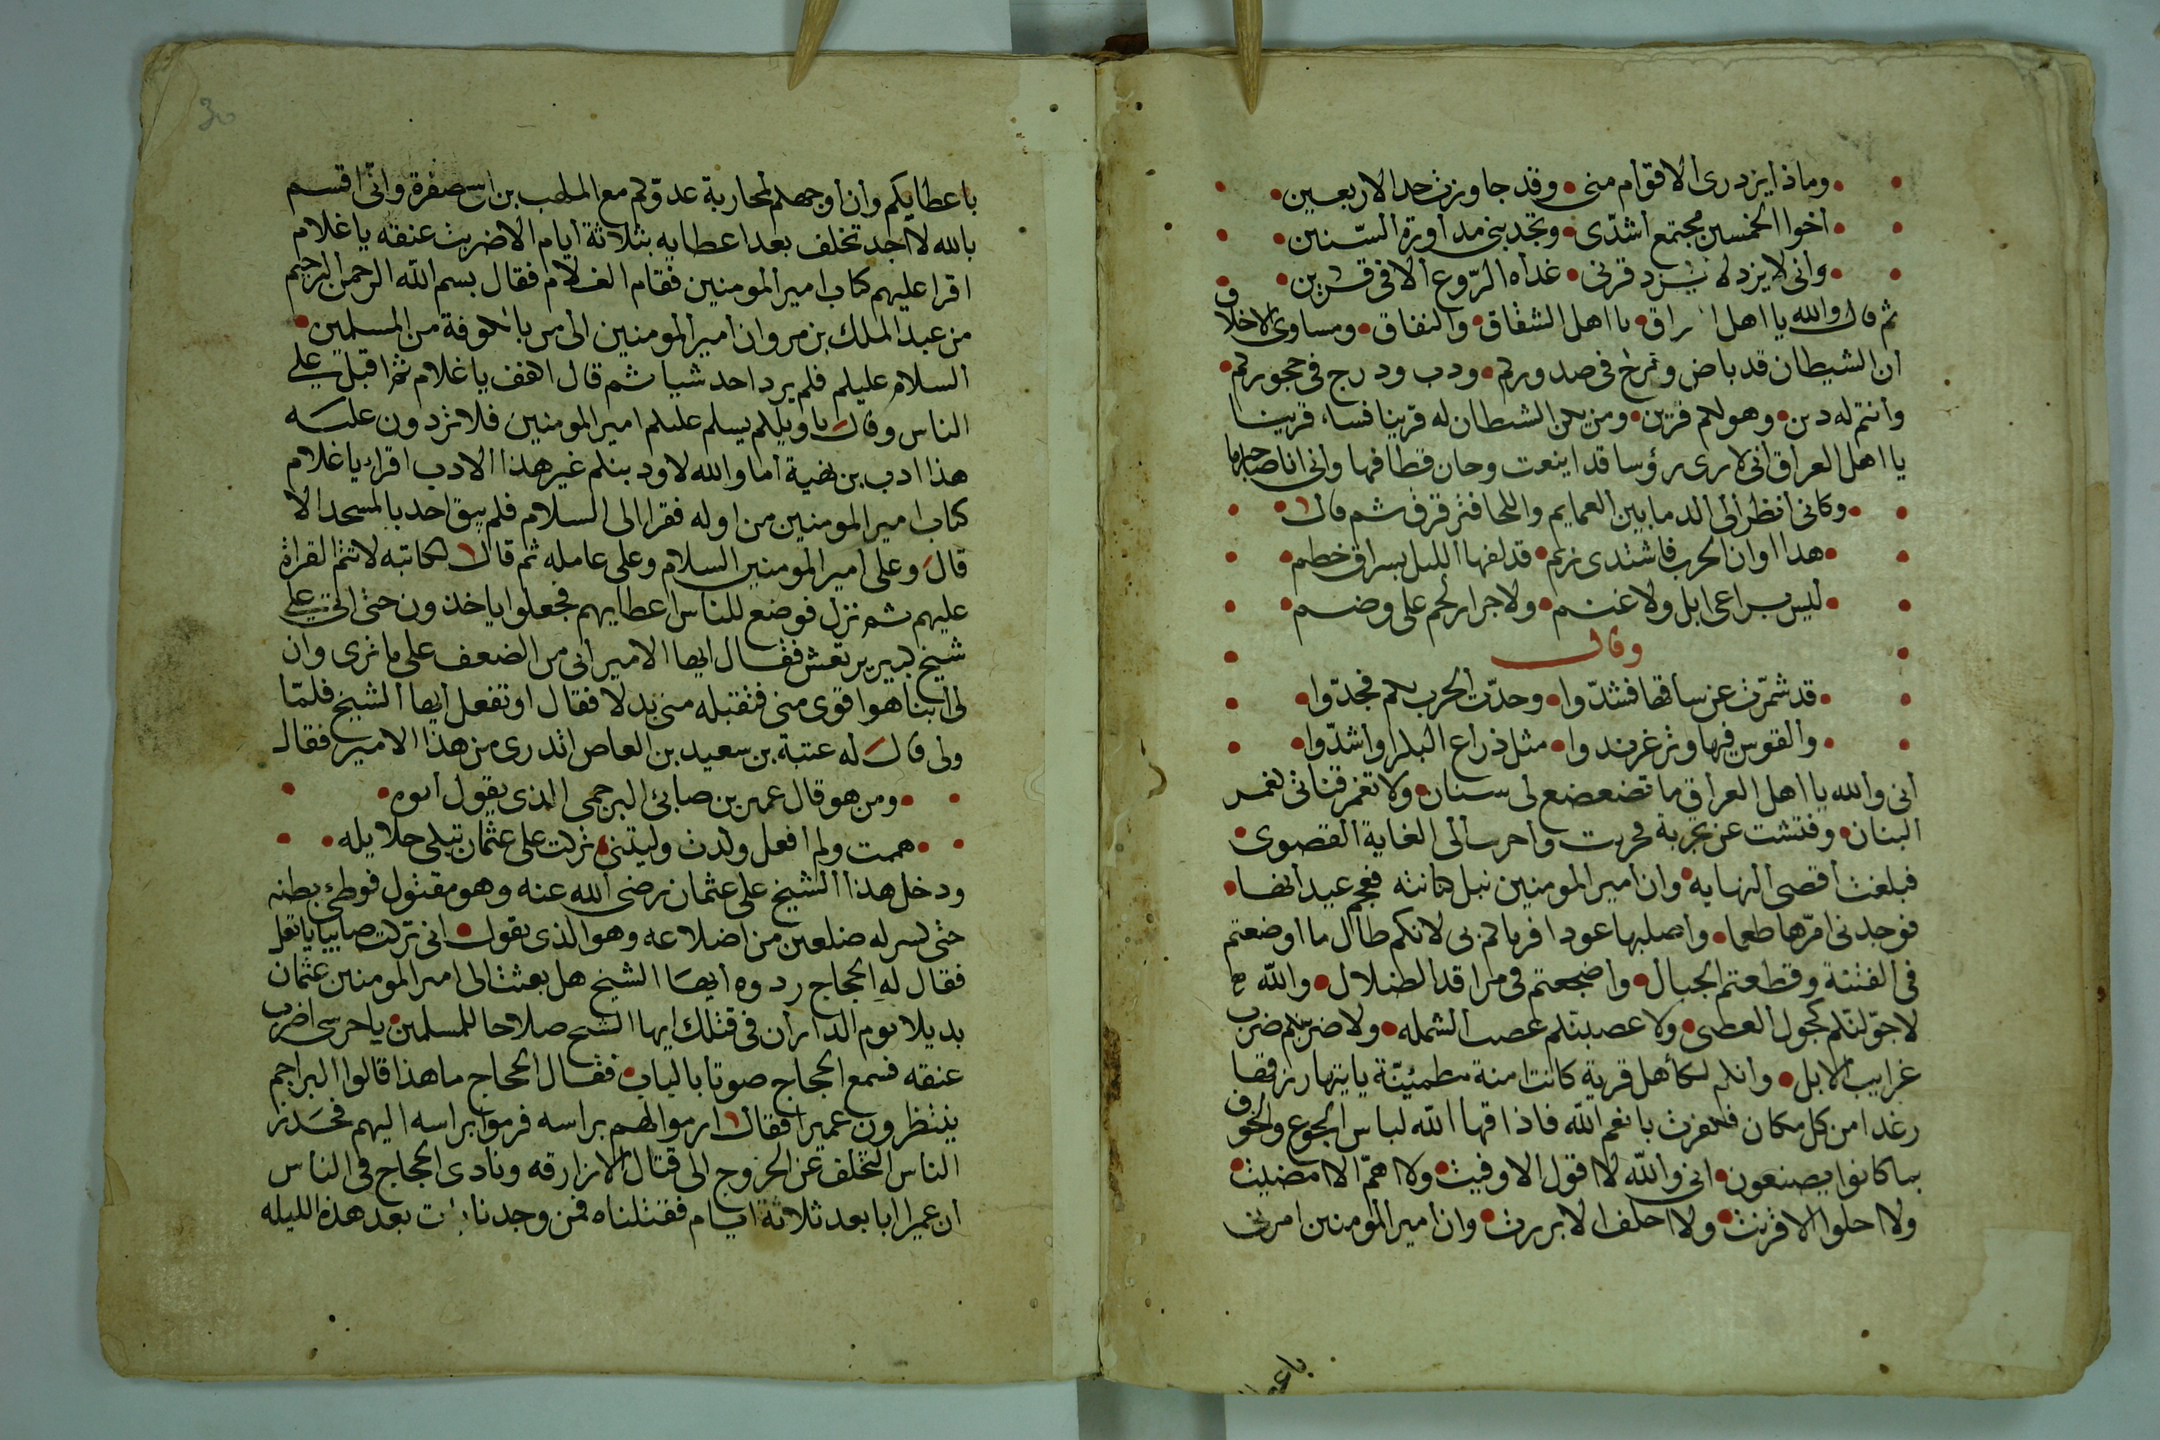 وماذا يزدرى الاقوام منى • وقد جاوزت حد الاربعين •
اخوا الخمسين مجتمع اشدّى • وتجدبنى مداورة السّنين •
وانى لا يزد له قرنى • غداه الرّوع الا فى قرين •
ثم قال والله يا اهل العراق • يا اهل الشقاق • والنفاق • ومساوى الاخلاق
ان الشيطان قد باض وفرخ فى صدوركم • ودب ودرج فى حجوركم •
وانتم له دين • وهو لكم قرين • ومن يكن الشيطان له قرينا فساء قرينا
يا اهل العراق انى لارى رؤسا قد اينعت وحان قطافها وانى انا صاحبها
• وكانى انظر الى الدما بين العمايم واللحا فترقرق ثم قال •
• هذا اوان الحرب فاشتدى زيم • قد لفها الليل بسراق خطم •
• ليس براعى ابل ولا غنم • ولا جرار لحم على وضم •
وقال
• قد شمرّت عن ساقها فشدّوا • وجدّت الحرب بكم فجدّوا •
• والقوس فيها وتر غرندوا • مثل ذراع البكر او اشدّوا •
انى والله يا اهل العراق ما تضعضع لى سنان • ولا تغمز قناتى لغمز
البنان • وفتشت عن تجربة فجريت واجريت الى الغاية القصوى •
فبلغت اقصى النهايه • وان امير المومنين نبل كنانته فعجم عيدانها •
فوجدنى امرّها طعما • واصلبها عودا فرماكم بى لانكم طال ما اوضعتم
فى الفتنة وقطعتم الجبال • واضجعتم فى مراقد الضلال • والله
لاحوّلنّكم كجول العصى • ولاعصبنّكم عصب الشمله • ولاضربنّكم ضرب
غرايب الابل • وانكم لكأهل قرية كانت امنة مطمئِنّة ياتيها رزقها
رغدا من كل مكان فكفرت بانعم الله فاذاقها الله لباس الجوع والخوف
بما كانوا يصنعون • انى والله لا اقول الا وفيت • ولا اهمّ الا امضيت •
ولا احلوا الا فريت • ولا احلف الا بررت • وان امير المومنين امرنى
باعطايكم
باعطايكم وان اوجهكم لمحاربة عدوّكم مع المهلب بن ابى صفرة وانى اقسم
بالله لا اجد تخلف بعد اعطايه بثلاثة ايام الا ضربت عنقه يا غلام
اقرا عليهم كتاب امير المومنين فقام الغلام فقال بسم الله الرحمن الرحيم
من عبد الملك بن مروان امير المومنين الى من بالكوفة من المسلمين •
السلام عليكم فلم يرد احد شيا ثم قال اكفف يا غلام ثم اقبل على
الناس وقال يا ويلكم يسلم عليكم امير المومنين فلا تردون عليه
هذا ادب بن نهية أما والله لاودبنكم غير هذا الادب اقراء يا غلام
كتاب امير المومنين من اوله فقرا الى السلام فلم يبق احد بالمسجد الا
قال وعلى امير المومنين السلام وعلى عامله ثم قال لكاتبه لا تتم القراة
عليهم ثم نزل فوضع للناس اعطايهم فجعلوا ياخذون حتى اتى على
شيخ كبير يرتعش فقال ايها الامير انى من الضعف على ما ترى وان
لى ابنا هو اقوى منى فتقبله منى بدلا فقال او تفعل ايها الشيخ فلمّا
ولى قال له عتبة بن سعيد بن العاص اتدرى من هذا الامير فقال
• ومن هو قال عمير بن صابئ البرجمى الذى يقول ابوه •
• هممت ولم افعل وكدت وليتنى • تركت على عثمان تبكى حلايله •
ودخل هذا الشيخ على عثمان رضى الله عنه وهو مقتول فوطئ بطنه
حتى كسر له ضلعين من اضلاعه وهو الذى يقول • انى تركت صابيا يا نعثل
فقال له الحجاج ردوه ايها الشيخ هل بعثت الى امير المومنين عثمان
بديلا يوم الدار ان فى قتلك ايها الشيخ صلاحا للمسلمين • يا حرسى اضرب
عنقه فسمع الحجاج صوتا بالباب • فقال الحجاج ما هذا قالوا البراجم
ينتظرون عميرا فقال ارموا لهم براسه فرموا براسه اليهم فحذر
الناس التخلف عن الخروج الى قتال الازارقه ونادى الحجاج فى الناس
ان عميرا ابا بعد ثلاثة ايام فقتلناه فمن وجدنا بات بعد هذه الليله